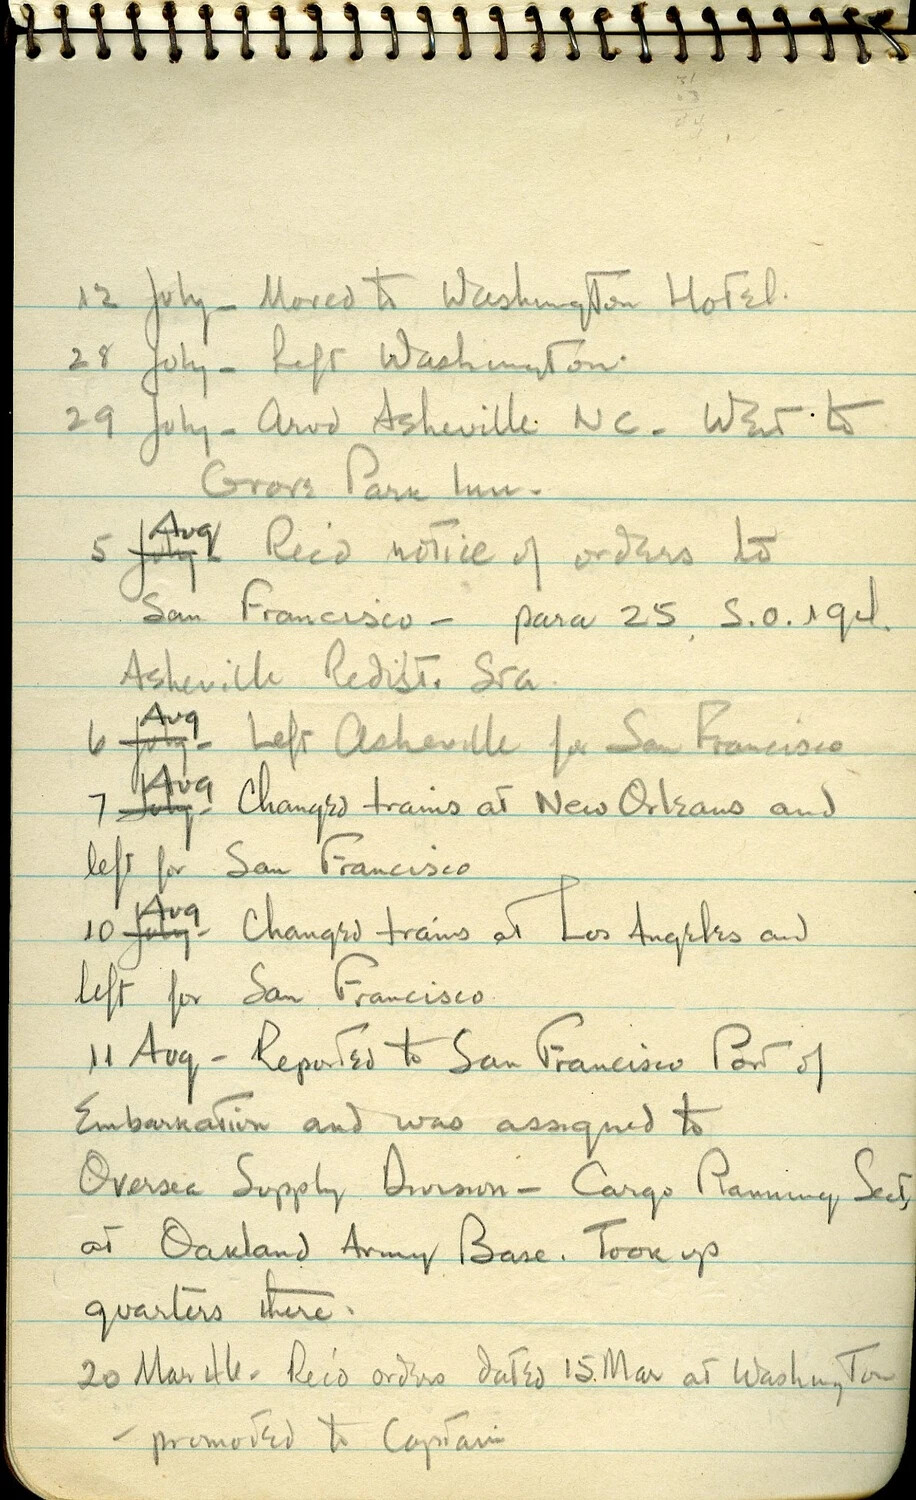 12 July - Moved to Washington Hotel.
28 July - Left Washington.
29 July - Arvd Asheville NC. Went to
Grove Park Inn.
5 July Aug - Rec'd notice of orders to
San Francisco - para 25, S.O. 194.
Asheville Redist. Sta.
6 July Aug - Left Asheville for San Francisco
7 July Aug - Changed trains at New Orleans and
left for San Francisco
10 July Aug - Changed trains at Los Angeles and
left for San Francisco
11 Aug - Reported to San Francisco Port of
Embarkation and was assigned to
Oversea Supply Division - Cargo Planning Sect,
at Oakland Army Base. Took up
quarters there.
20 Mar - Rec'd orders dated 15 Mar at Washington
- promoted to Captain